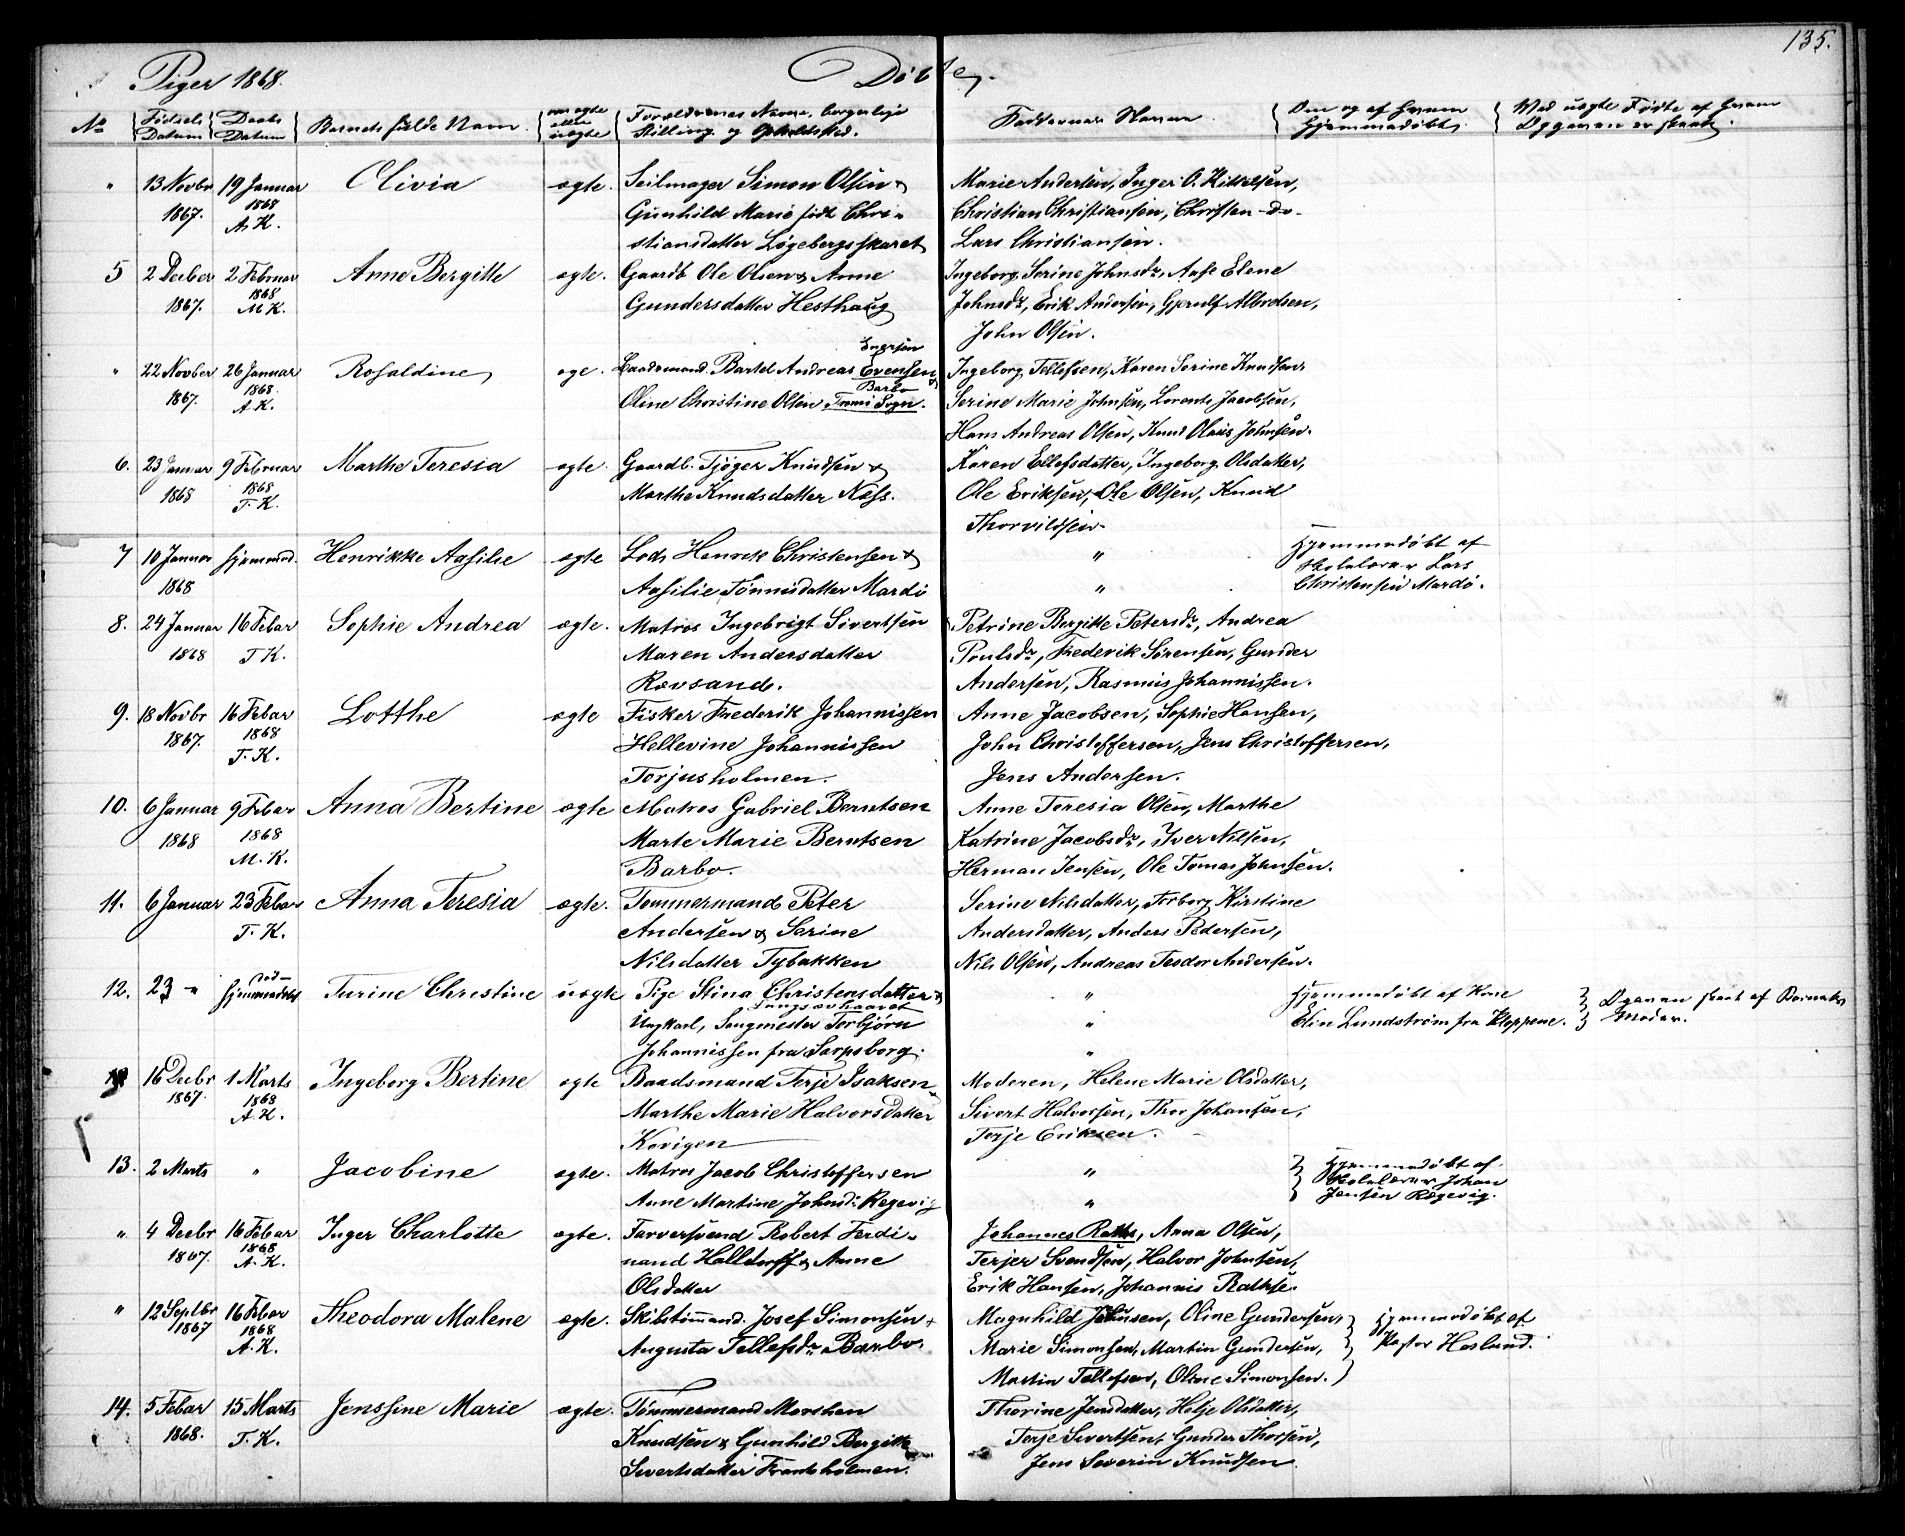 135.
Piger 1868. Døbte.
No Fødsels Datum Daabs Datum Barnets fulde Navn om ægte eller uægte Forældrenes Navne, borgerlige Stilling og Opholdssted. Faddernes Navne Om og af hvem Hjemmedøbt Med uægte Fødte af hvem Opgaven er skeet
" 13 Novbr 19 Januar Olivia ægte. Seilmager Simon Olsen & Marie Andersen, Inger O. Kittelsen,
1867. 1868 A.K. Gunhild Marie født Chri- Christian Christiansen, Christen -do-
stiansdatter Løgebergsskaret Lars Christiansen.
5 2 Decber 2 Februar Anne Bergitte ægte. Gaardb Ole Olsen & Anne Ingeborg Serine Johnsdr, Aase Elene
1867. 1868 M.K. Gundersdatter Hesthaug Johnsdr, Erik Andersen, Gjerulf Albretsen,
John Olsen.
Enersen
" 22 Novber 26 Januar Rosaldine ege. Baadsmand. Bartel Andreas Evensen & Ingeborg Tellefsen, Karen Serine Knudsen,
1867. 1868. A.K. Oline Christine Olsen Tromø Sogn. Barbo Serine Marie Johnsen, Lorents Jacobsen,
Hans Andreas Olsen, Knud Olaus Johnsen.
6. 23 Januar 9 Februar Marthe Teresia ægte. Gaardb. Tjøger Knudsen & Karen Ellefsdatter, Ingeborg Olsdatter,
1868 1868 T.K. Marthe Knudsdatter Næss. Ole Eriksen, Ole Olsen, Knud
Thorvildsen
7 10 Januar hjemmed. Henrikke Aasilie ægte Lods Henrik Christensen & " Hjemmedøbt af
1868 Aasilie Tønnisdatter Mardø " Skolelærer Lars
Christensen Mardø.
8. 24 Januar 16 Febar Sophie Andrea ægte. Matros Ingebrigt Sivertsen Petrine Bergitte Petersdr, Andrea
1868 T.K. Maren Andersdatter Poulsdr, Frederik Sørensen, Gunder
Rævsand. Andersen, Rasmus Johannissen.
9. 18 Novbr 16 Febar Lotthe ægte Fisker Frederik Johannissen Anne Jacobsen, Sophie Hansen,
1867. 1868 T.K. Hellevine Johannissen John Christoffersen, Jens Christoffersen,
Torjusholmen. Jens Andersen.
10. 6 Januar 9 Febar Anna Bertine ægte Matros Gabriel Berntsen Anne Teresia Olsen, Marthe
1868 1868 M.K. Marte Marie Berntsen Katrine Jacobsdr, Iver Nilsen,
Barbo. Herman Jensen, Ole Tomas Johnsen.
11. 6 Januar 23 Febar Anna Teresia ægte. Tømmermand Peter Serine Nilsdatter, Torborg Kirstine
T.K. Andersen & Serine Andersdatter, Anders Pedersen,
Nilsdatter Tybakken Nils Olsen, Andreas Teodor Andersen.
12. 23 " hjemmedøbt Turine Christine uægte Pige Stina Christensdatter & " Hjemmedøbt af Kone } Opgaven skeet af Barnets
Ungkarl, Sangmester Torbjørn " Elin Lundstrøm fra Kloppene. } Moder.
Johannissen fra Sarpsborg. "
16 Decbr 1 Marts Ingeborg Bertine ægte Baadsmand Terje Isaksen Moderen, Helene Marie Olsdatter,
1867. 1868 A.K. Marthe Marie Halvorsdatter Sivert Halvorsen, Thor Johansen,
Kovigen Terje Eriksen.
13. 2 Marts " Jacobine ægte. Matros Jacob Christoffersen " Hjemmedøbt af
Anne Martine Johnsdr Regevig " Skolelærer Johan
Jensen Rægevig.
" 4 Decbr 16 Febar Inger Charlotte ægte. Farversvend Robert Ferdi- Johannes Rathe, Anna Olsen,
1867. 1868 A.K. nand Halldorff & Anne Terjer Svendsen, Halvor Johnsen,
Olsdatter Erik Hansen, Johannis Rathse.
" 12 Septbr 16 Febar Theodora Malene ægte. Skibstømmand. Josef Simonsen & Magnhild Johnsen, Oline Gundersen, Hjemmedøbt af
1867 1868 A.K. Augusta Tellefsdr Barbo. Marie Simonsen, Martin Gundersen, Pastor Haslund.
Martin Tellefsen, Oline Simonsen.
14. 5 Febar 15 Marts Jenssine Marie ægte. Tømmermand Morthen Thorine Jensdatter, Helje Olsdatter,
1868. T.K. Knudsen & Gunhild Bergitte Terje Sivertsen, Gunder Thorsen,
Sivertsdatter Frantsholmen. Jens Severin Knudsen.